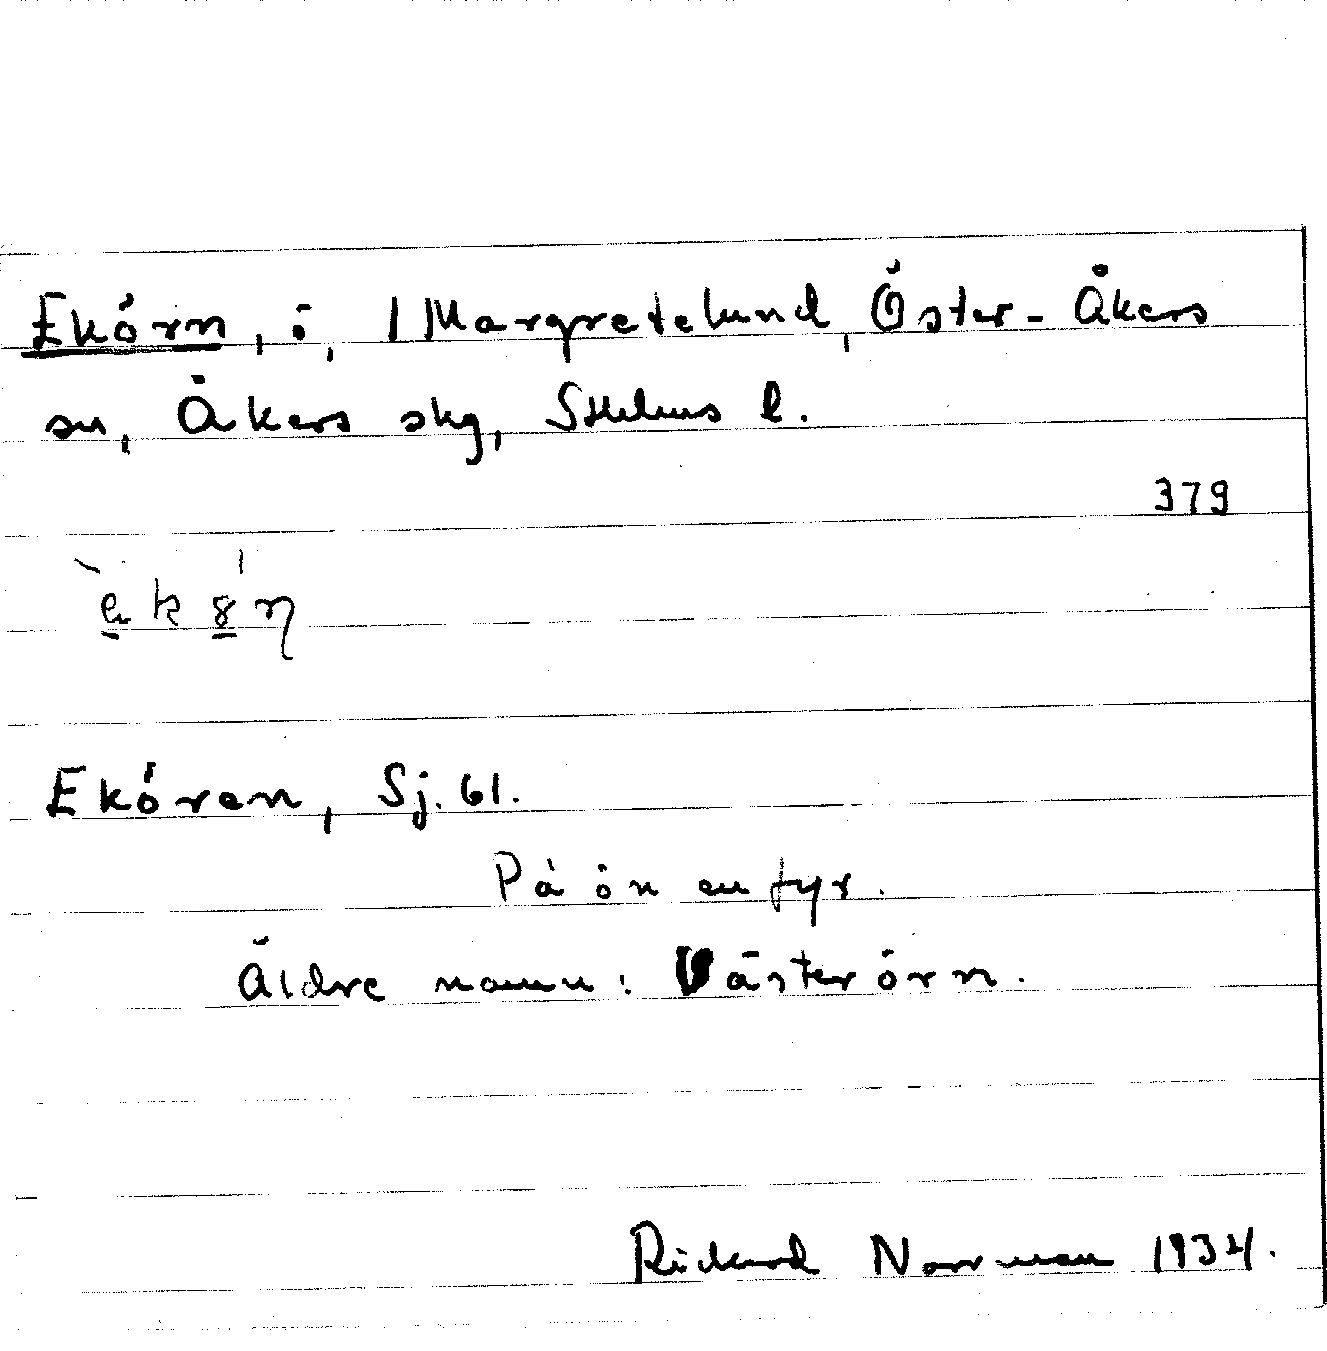 Ekörn, ö, 1 Margretelund, Öster-Åkers
sn, Åkers skg, Sthlms l.
379
Ekören, Sj. 61.
På ön en fyr.
Äldre namn: Västerörn.
Rickard Norrman 1934.